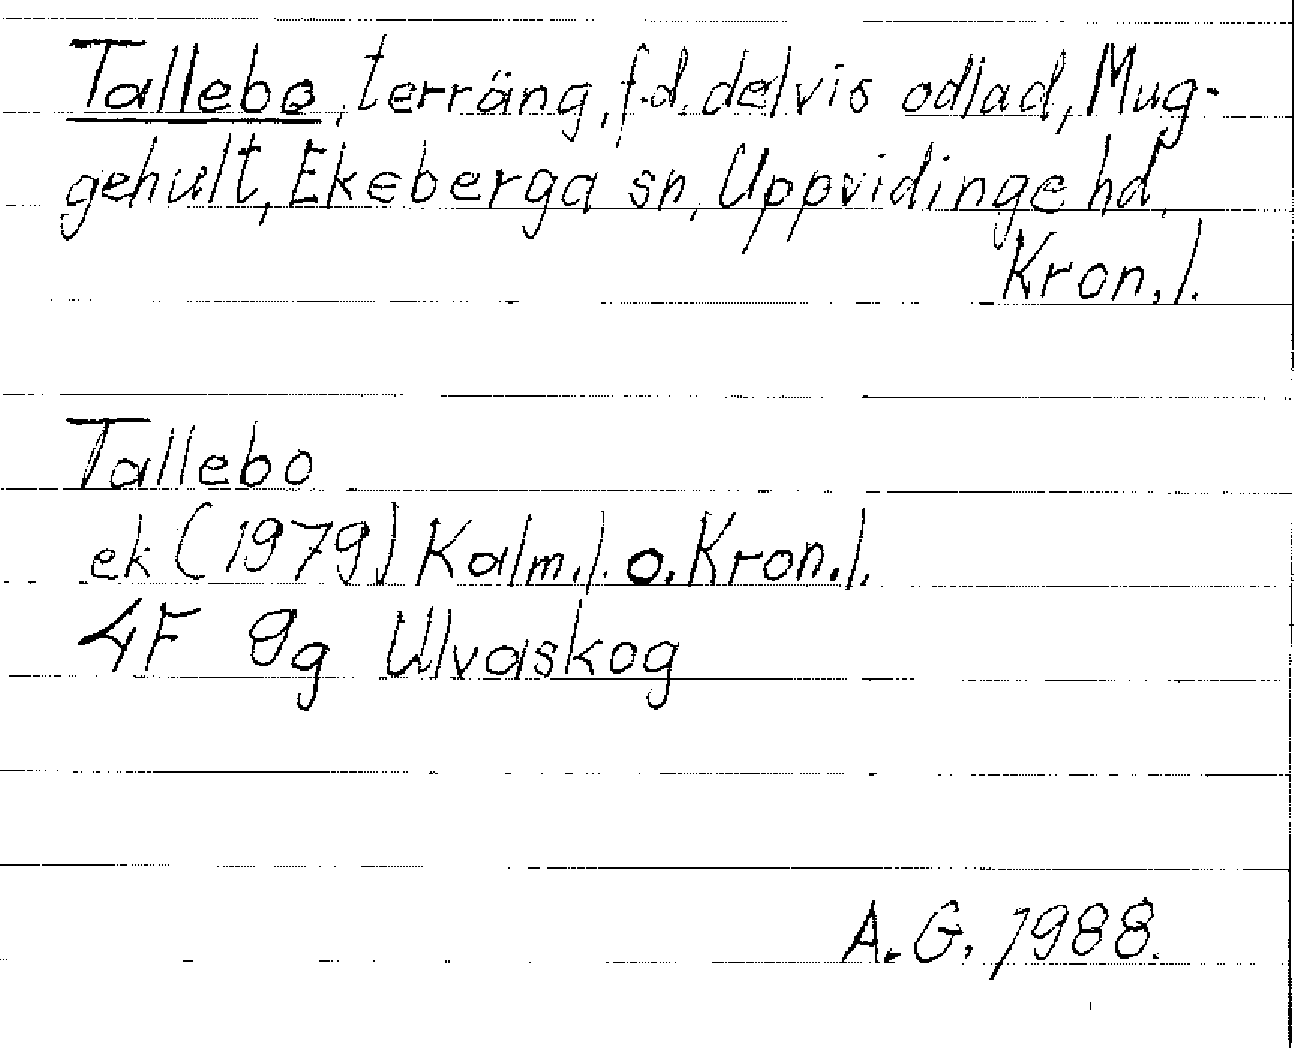 Tallebo, terräng, f.d. delvis odlad, Mug-
gehult, Ekeberga sn, Uppvidinge hd,
Kron.l.
Tallebo
ek (1979) Kalm.l. o. Kron.l.
4F 9g Ulvaskog
A.G. 1988.